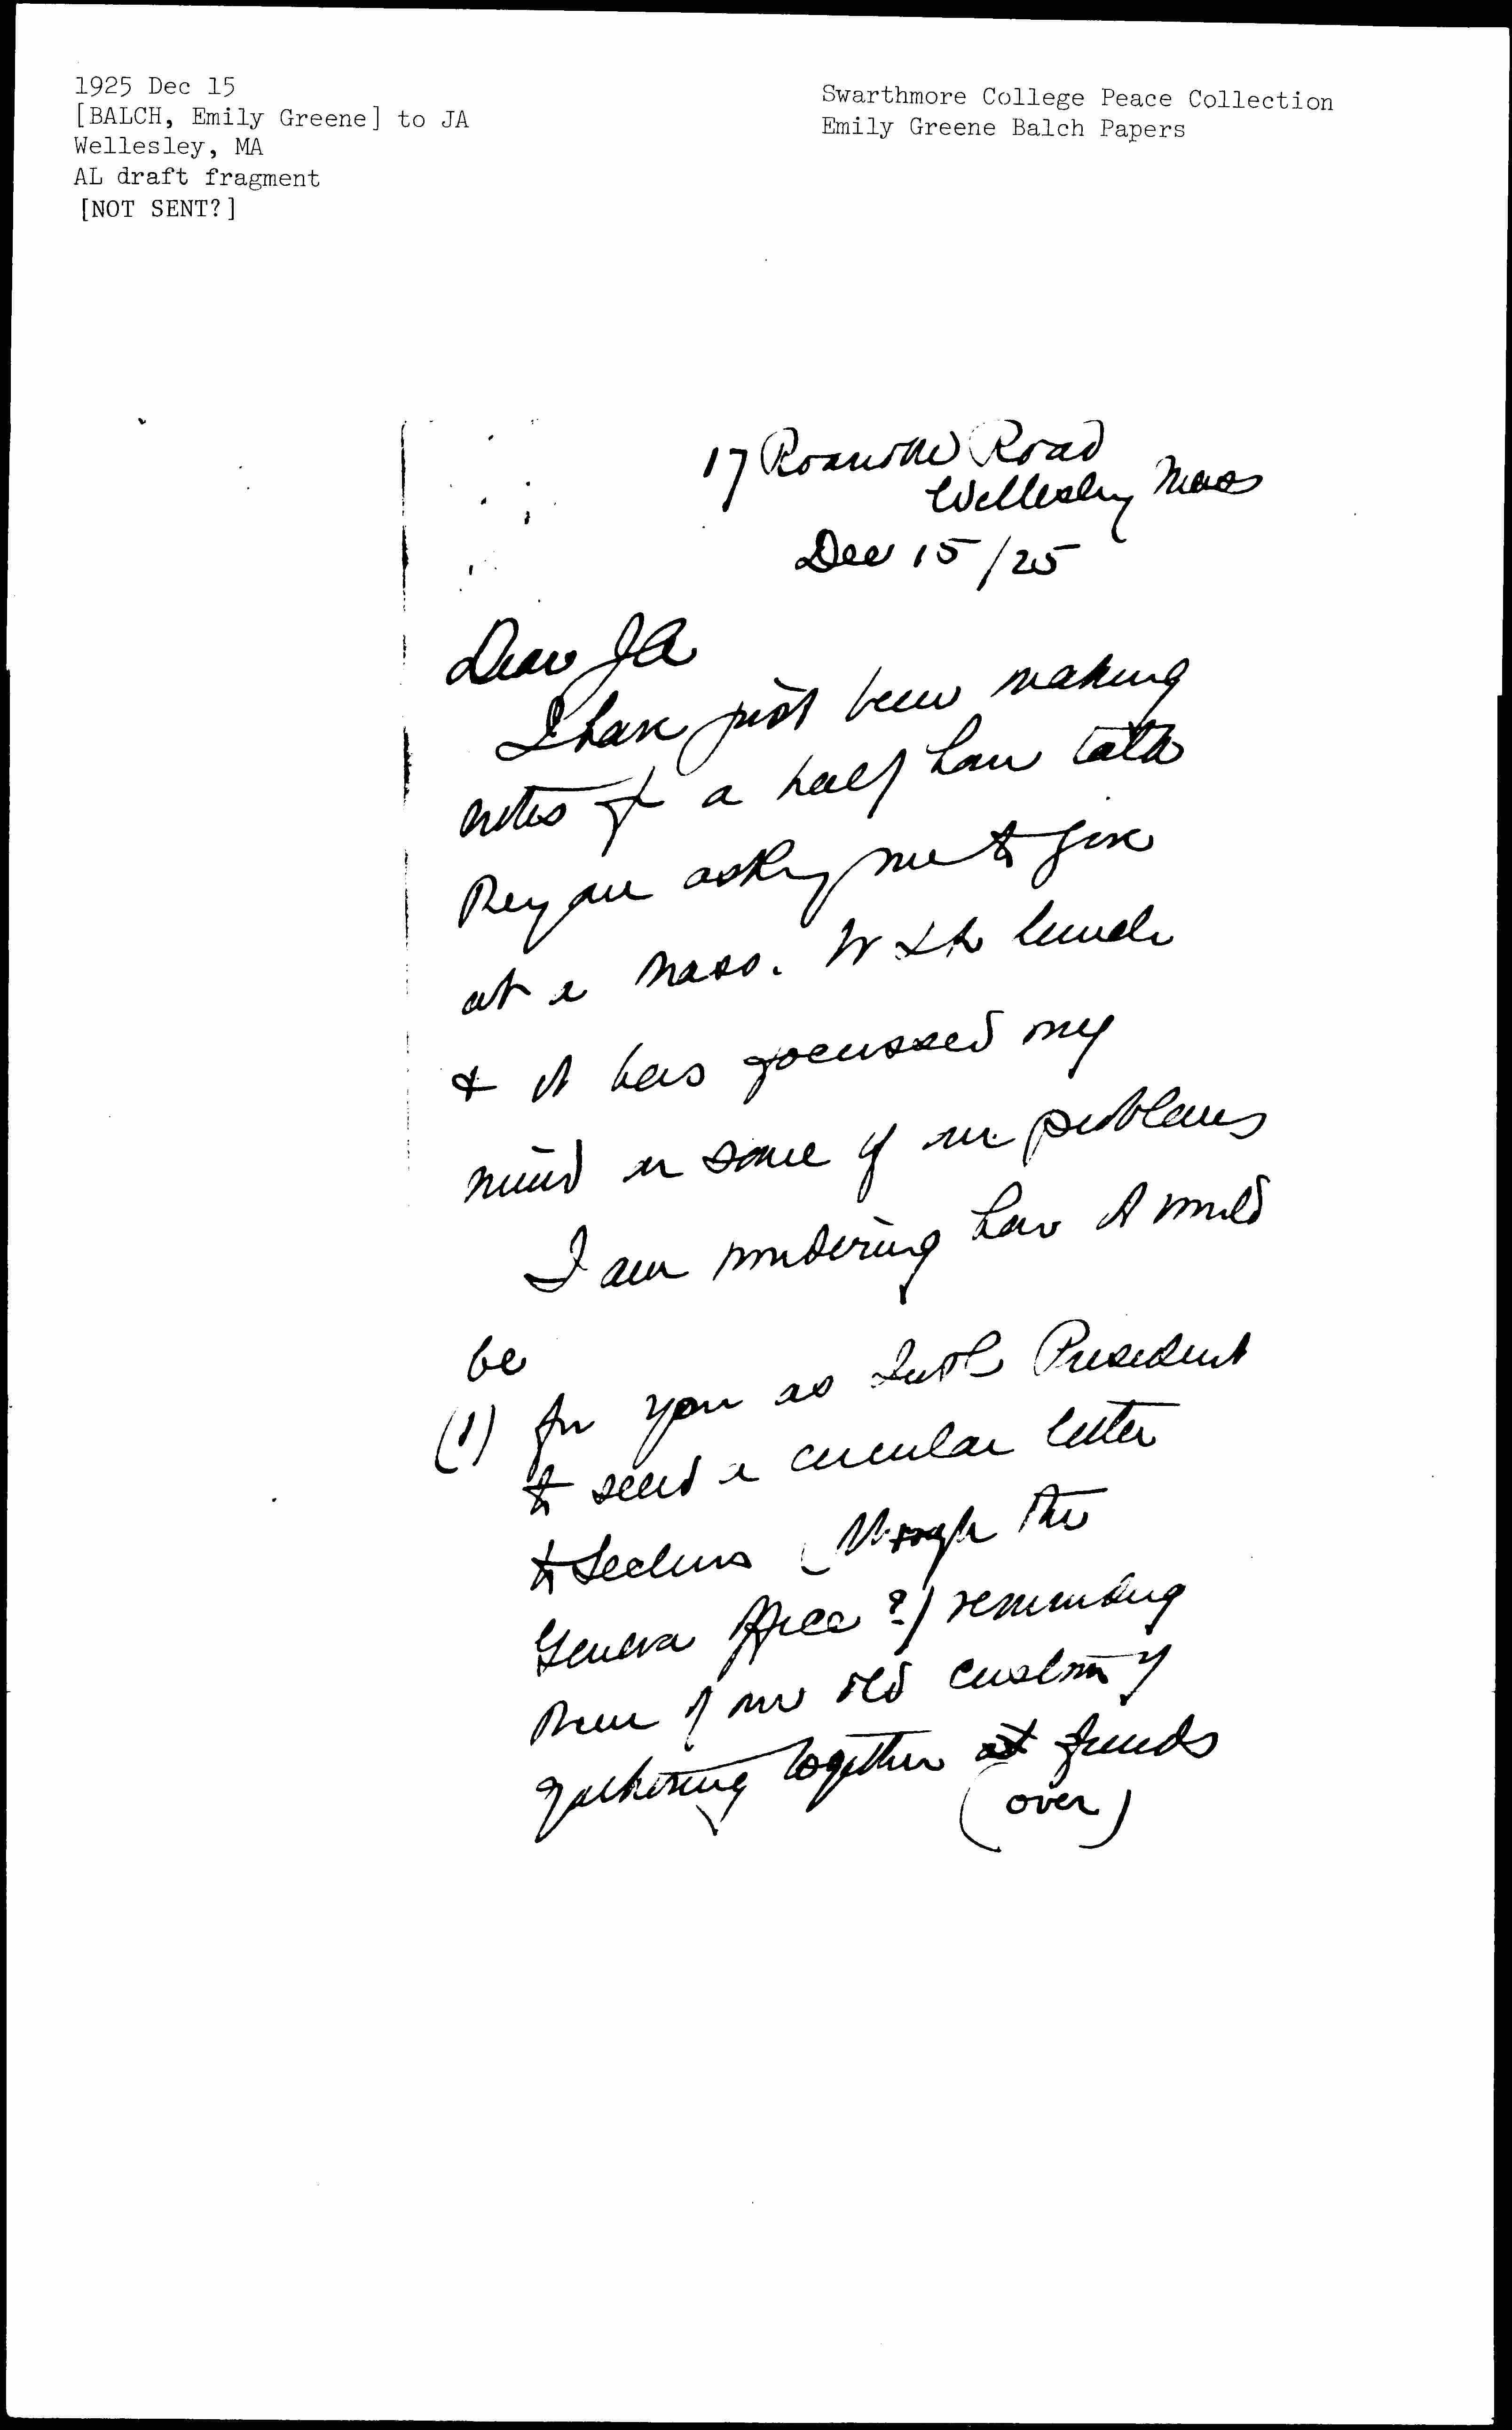 1925 Dec 15
[BALCH, Emily Greene] to JA
Wellesley, MA
AL draft fragment
[NOT SENT?]
Swarthmore College Peace Collection
Emily Greene Balch Papers
17 Roanoke Road
Wellesley Mass
Dec 15/25
Dear JA
I have just been making
notes of a half hour talk
they are asking me to give
at a Mass. W I L lunch
& it has focussed my
mind on some of our problems
I am wondering how it would
be
(1) for you as Intl President
to send a circular letter
to Sections (through the
Geneva Office?) reminding
them of our old custom of
gathering together at funds
(over)